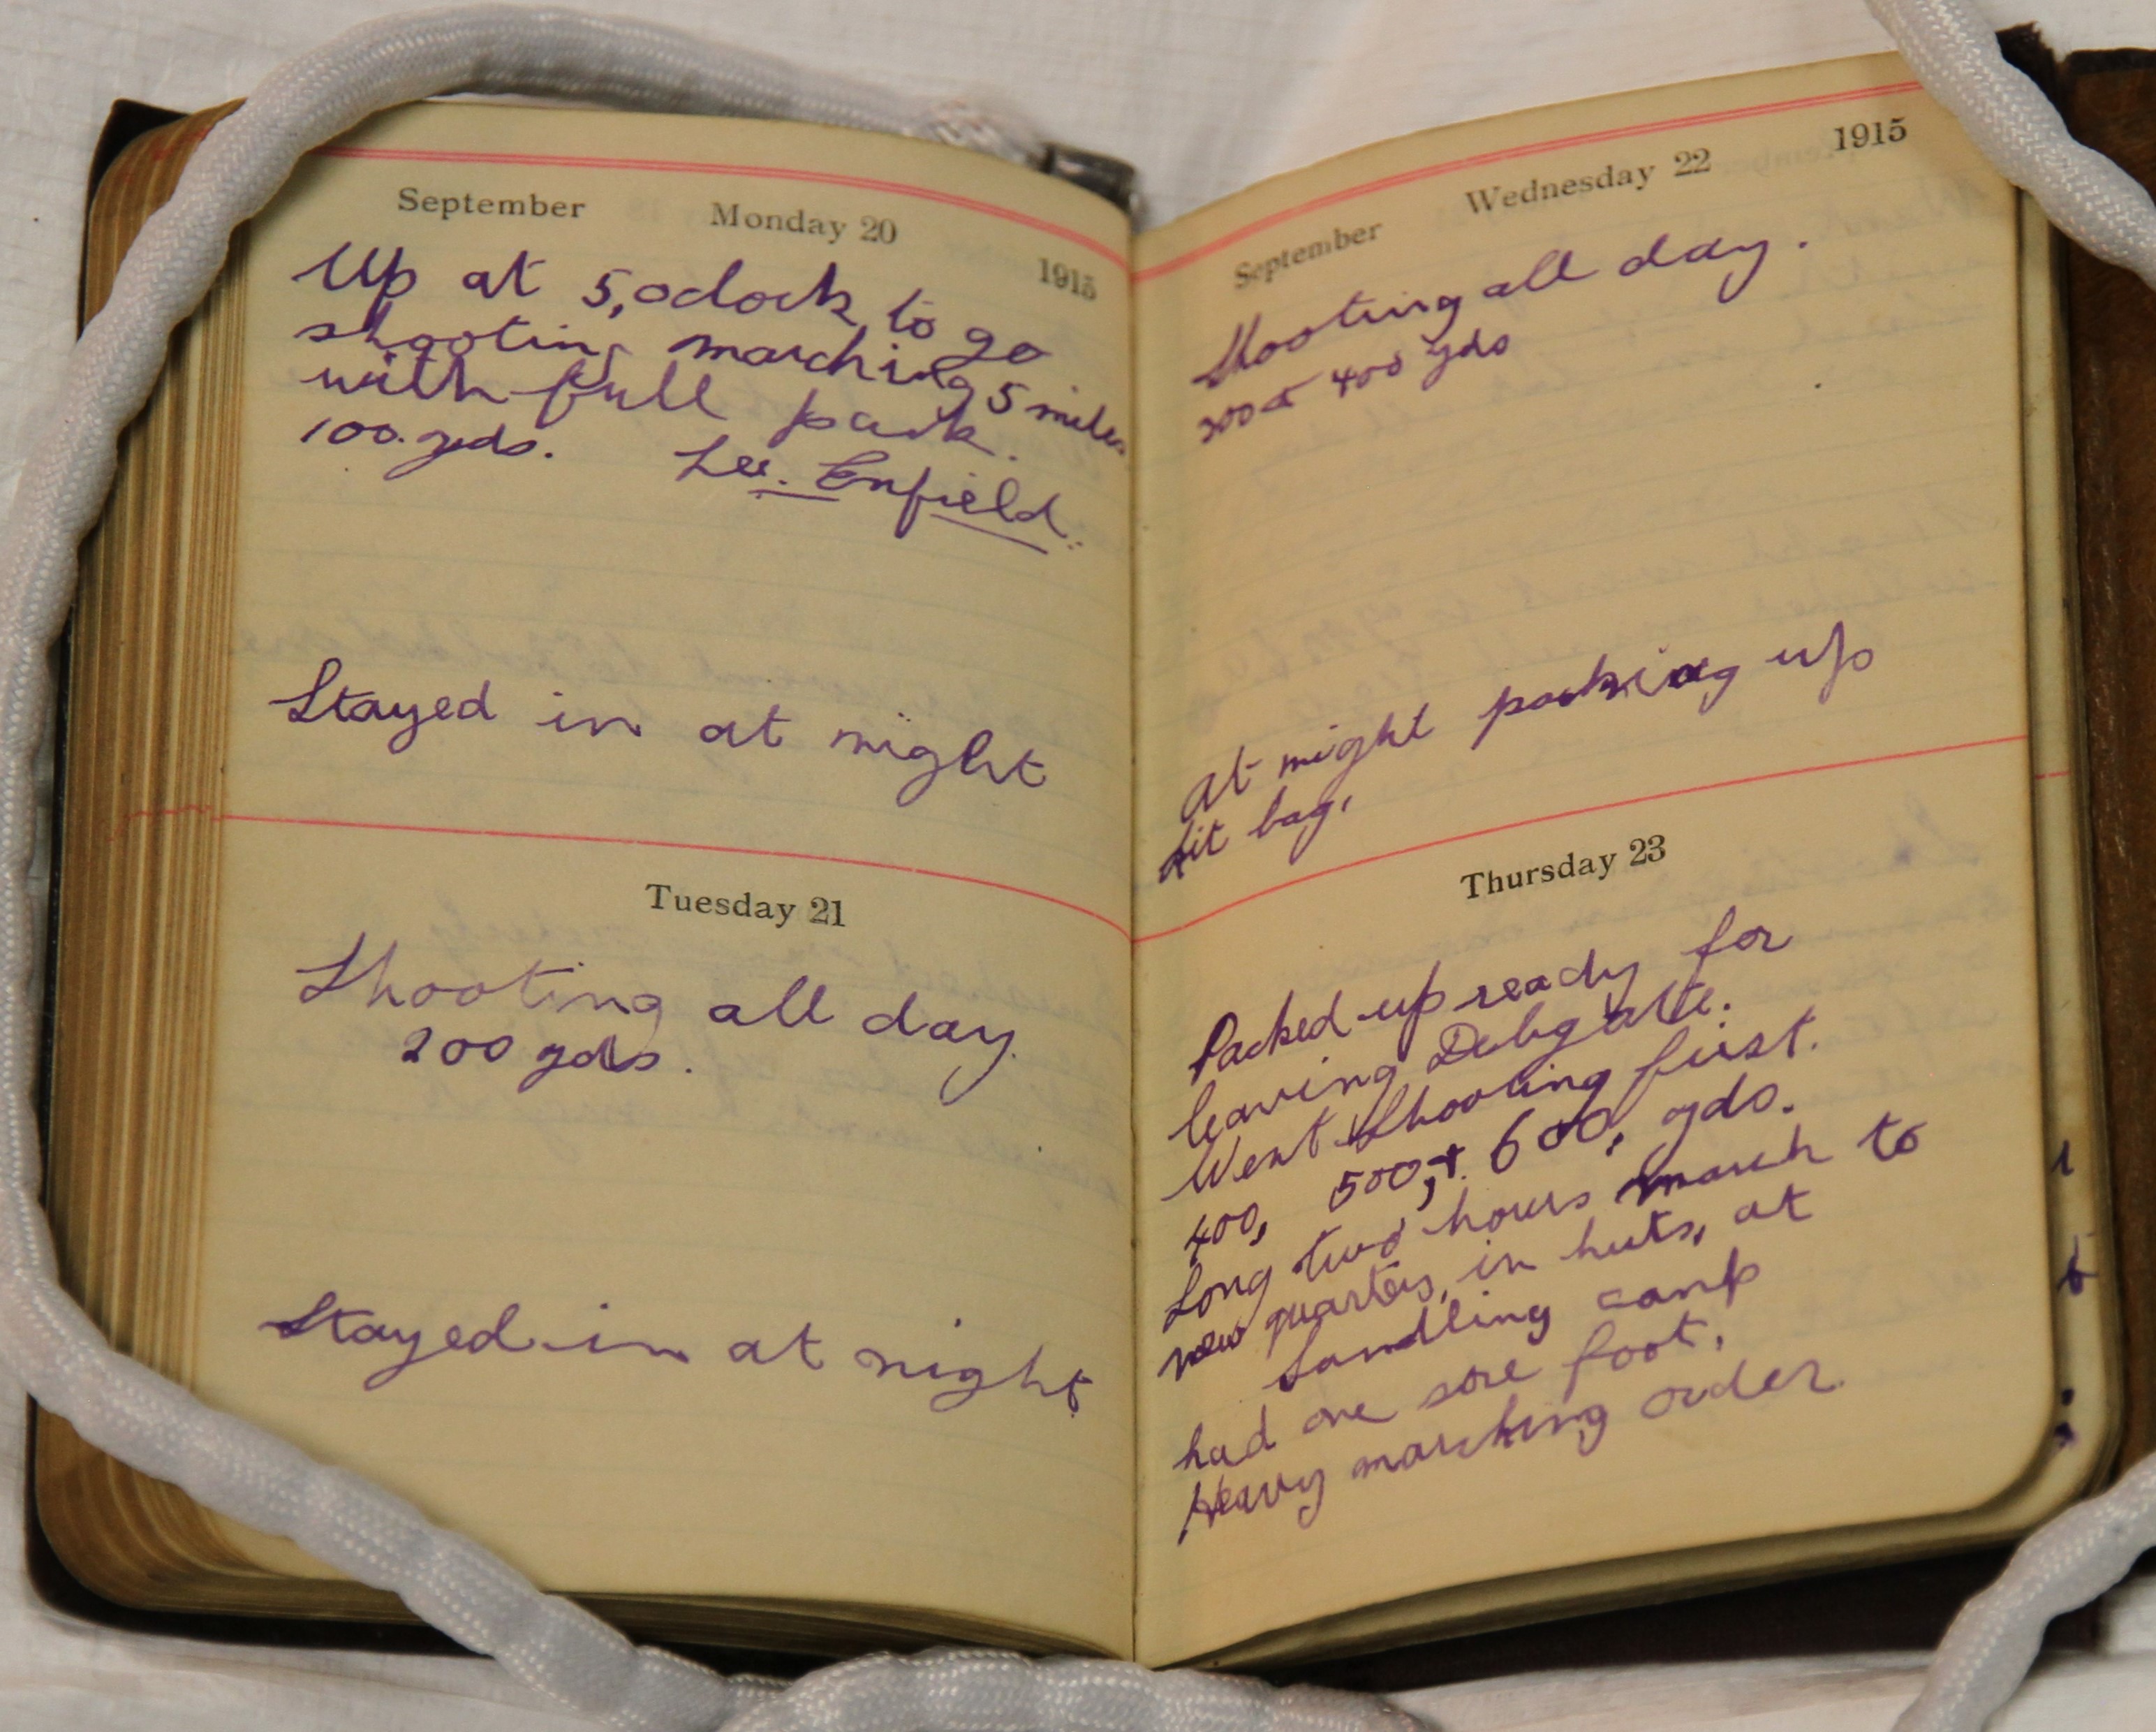 September Monday 20 1915
Up at 5, oclock, to go
shooting marching 5 miles
with full pack.
100. yds. Lee. Enfield.
Stayed in at night
Tuesday 21
Shooting all day.
200 yds.
Stayed in at night
September Wednesday 22 1915
Shooting all day.
300 & 400 yds
At night packing up
kit bag.
Thursday 23
Packed up ready for
leaving Dibgate.
Went Shooting first.
400, 500, + 600, yds.
Long two hours march to
new quarters, in huts, at
Sandling camp
had one sore foot.
Heavy marching order